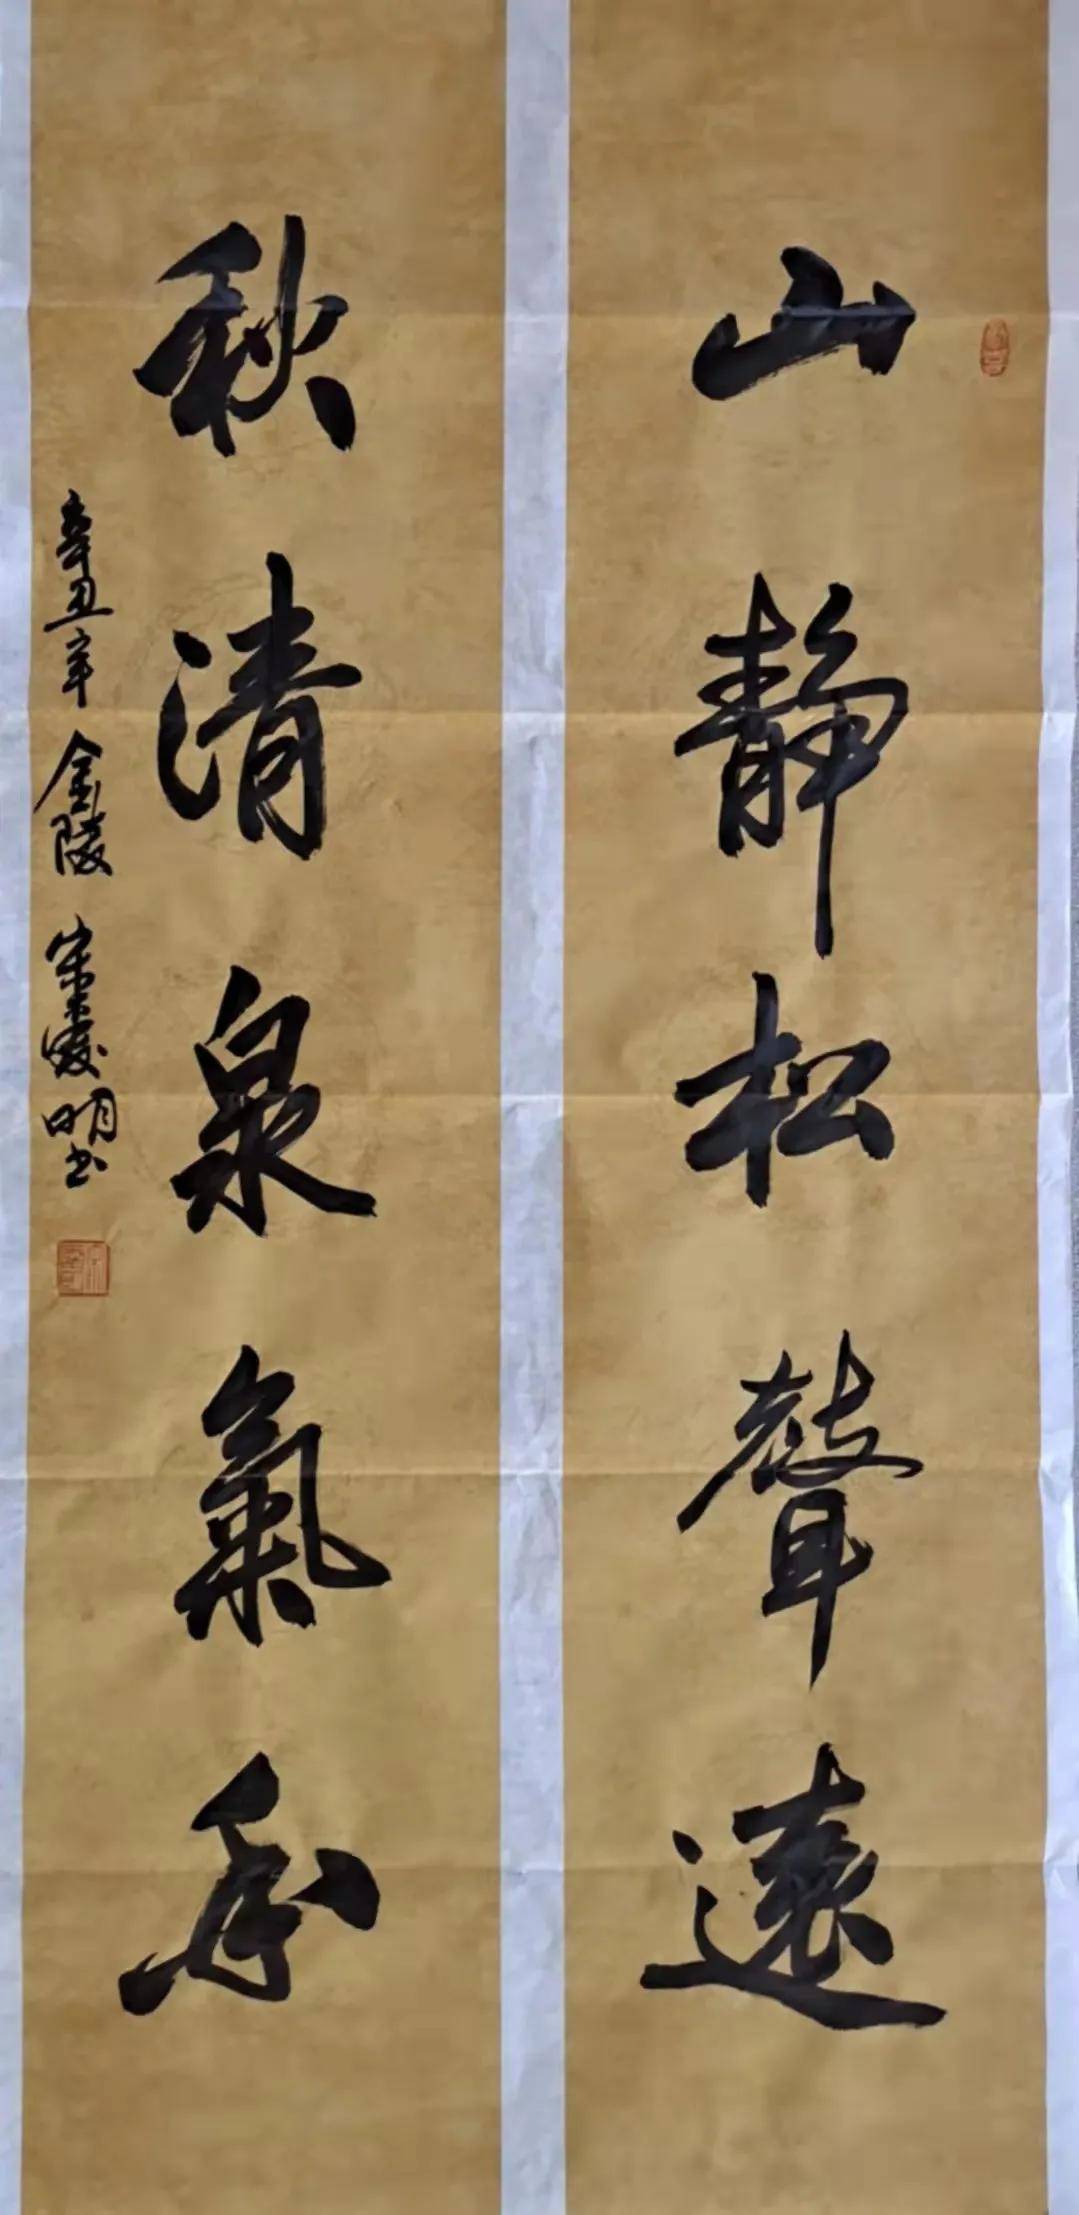 山靜松聲遠
秋清泉氣香
辛丑年 金陵 宋雙明书